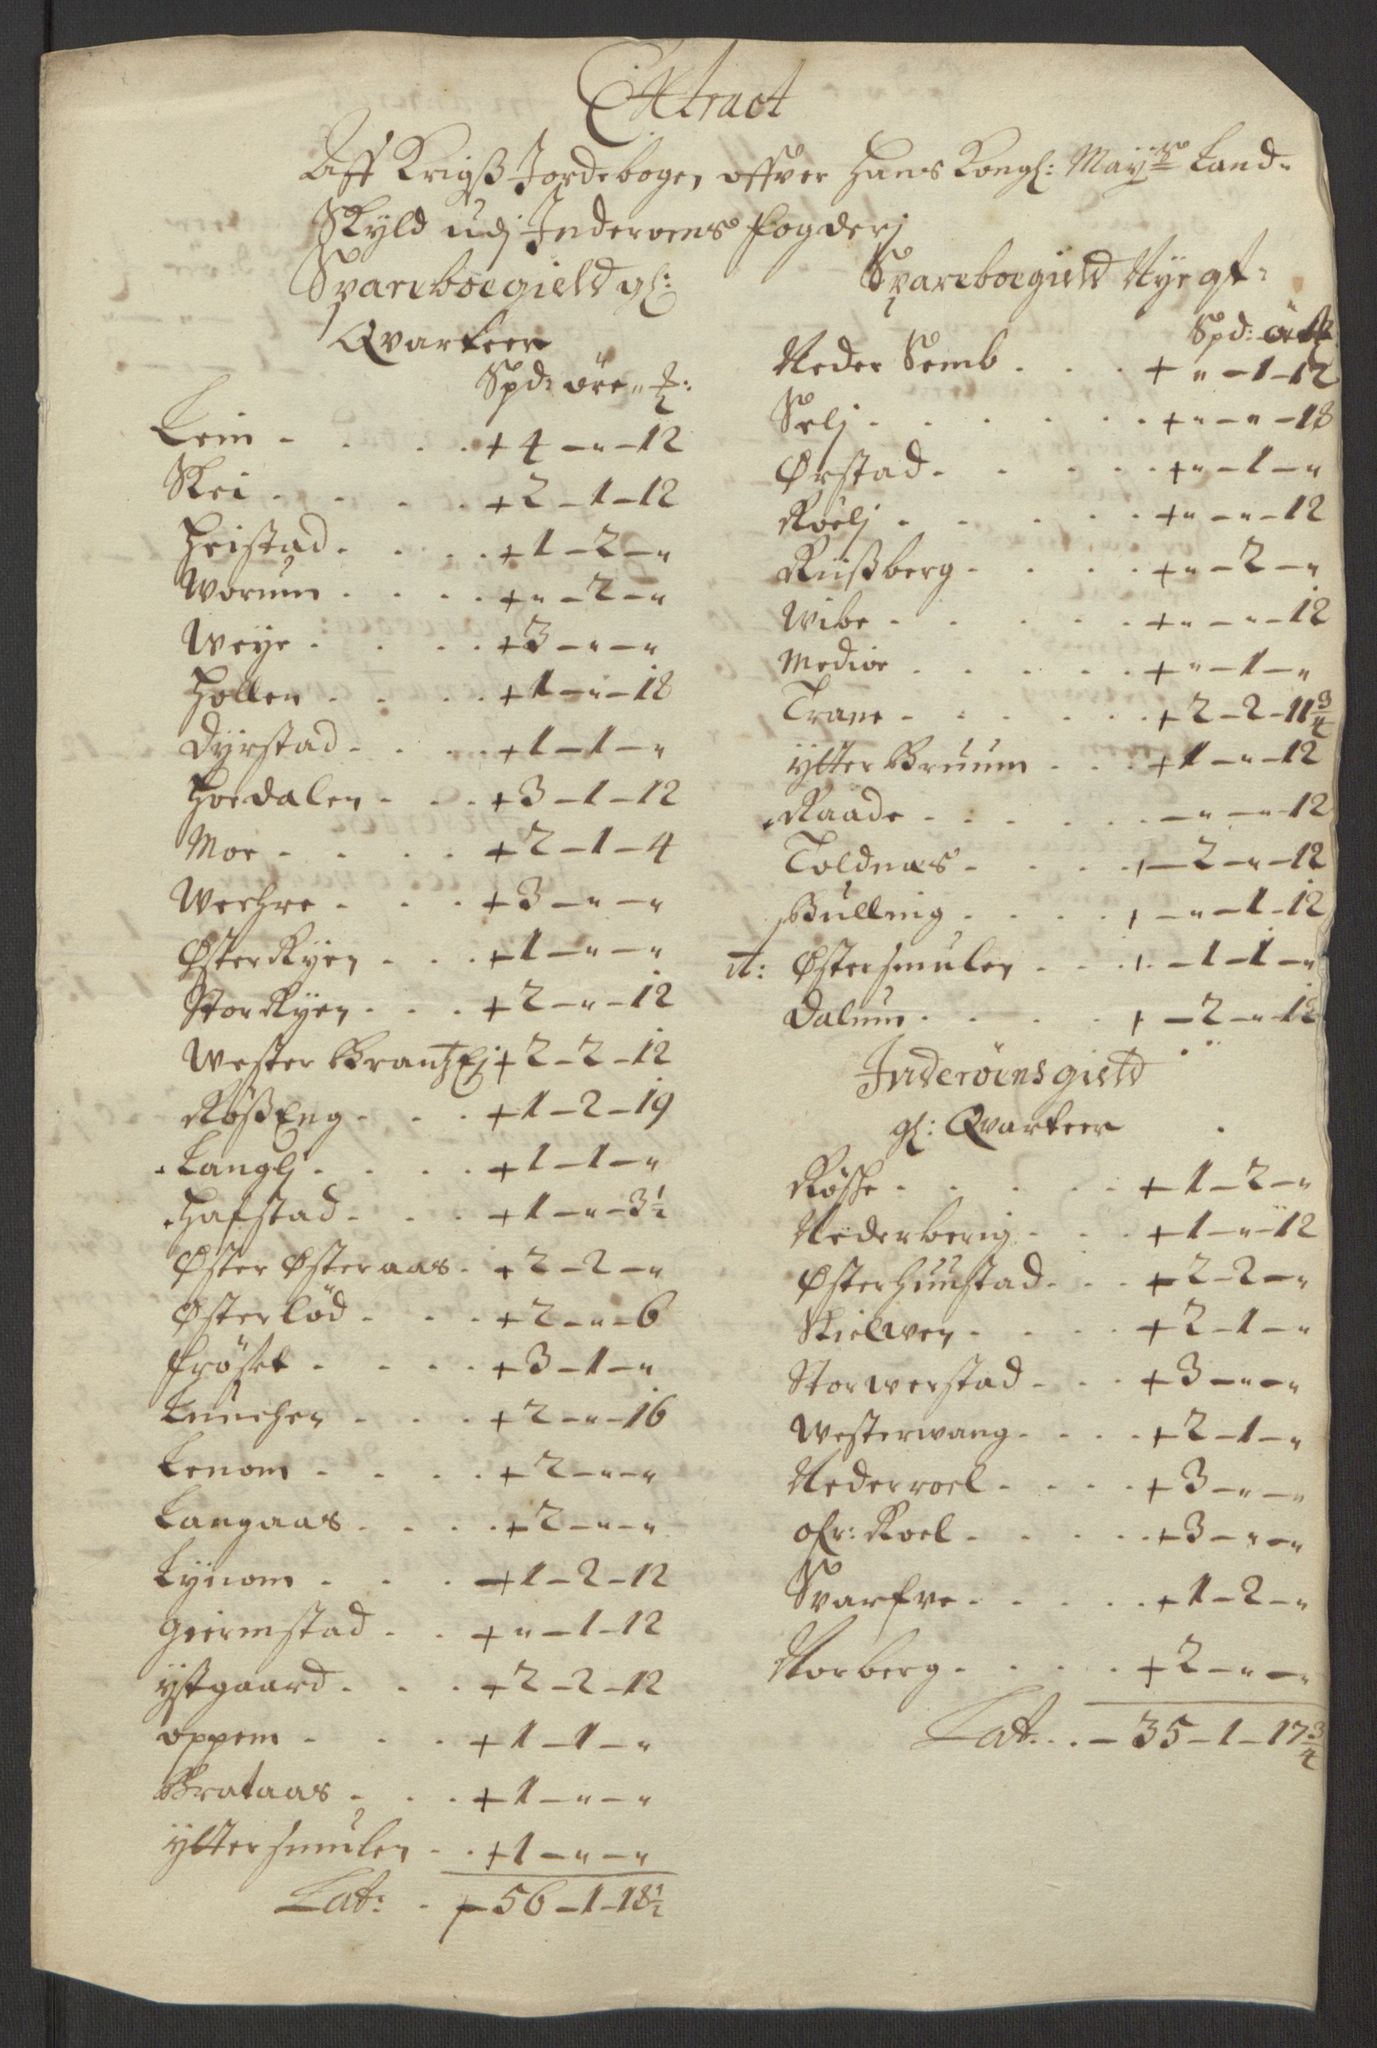 Extract
Aff Krigß Jordebogen offver Hans Kongl: May:ts Land-
Skyld udj Inderoens fogderj
Spareboegield gl:
Qvarteer
Spd: öre "
Lein - + 4 - " - 12
Skei - + 2 - 1 - 12
Heistad - + 1 - 2 - "
Worum - + " - 2 - "
Weye - + 3 - " - "
Hollen - + 1 - " - 18
Dyrstad - + 1 - 1 - "
Hoedalen - + 3 - 1 - 12
Moe - + 2 - 1 - 4
Wechre - + 3 - " - "
Øster Kyen - + 1 - " - "
Stor Kyen - + 2 - " - 12
Wester Brantzej + 2 - 2 - 12
Røß Eng - + 1 - 2 - 19
Langlj - + 1 - 1 - "
Hafstad - + 1 - " - 3 1/2
Øster Østeraas - + 2 - 2 - "
Østerlöd - + 2 - " - 6
fröset - + 3 - 1 - "
Lunchen - + 2 - " - 16
Lenom - + 2 - " - "
Langaas - + 2 - " - "
Lynom - + 1 - 2 - 12
Geermstad - + " - 1 - 12
Ystgaard - + 2 - 2 - 12
Oppem - + 1 - 1 - "
Brataas - + 1 - " - "
Ytter Smulen - + 1 - " - "
Lat: - 56 - 1 - 18 1/2
Spareboegield Nye qt:
Spd:
Neder Semb - + " - 1 - 12
Selj - + " - " - 18
Ørstad - + " - 1 - "
Röelj - + " - " - 12
Rüßberg - + " - 2 - "
Wibe - + " - " - 12
Medioe - + " - 1 - "
Trane - + 2 - 2 - 11 3/4
Ytter Bruum - + 1 - " - 12
Raade - " - " - 12
Toldnæs - + 2 - " - 12
Bulling - + " - 1 - 12
it: Øster Smulen - + 1 - 1 - "
Dalum - + 2 - " - 12
Inderöens gield
gl: Qvarteer
Rösse - + 1 - 2 - "
Nederberig - + 1 - " - 12
Øster Huustad - + 2 - 2 - "
Skielwen - + 2 - 1 - "
Storwerstad - + 3 - " - "
Westerwang - + 2 - 1 - "
Nederroel - + 3 - " - "
Ofr: Roel - + 3 - " - "
Svarfve - + 1 - 2 - "
Norberg - + 2 - " - "
Lat - 35 - 1 - 17 3/4